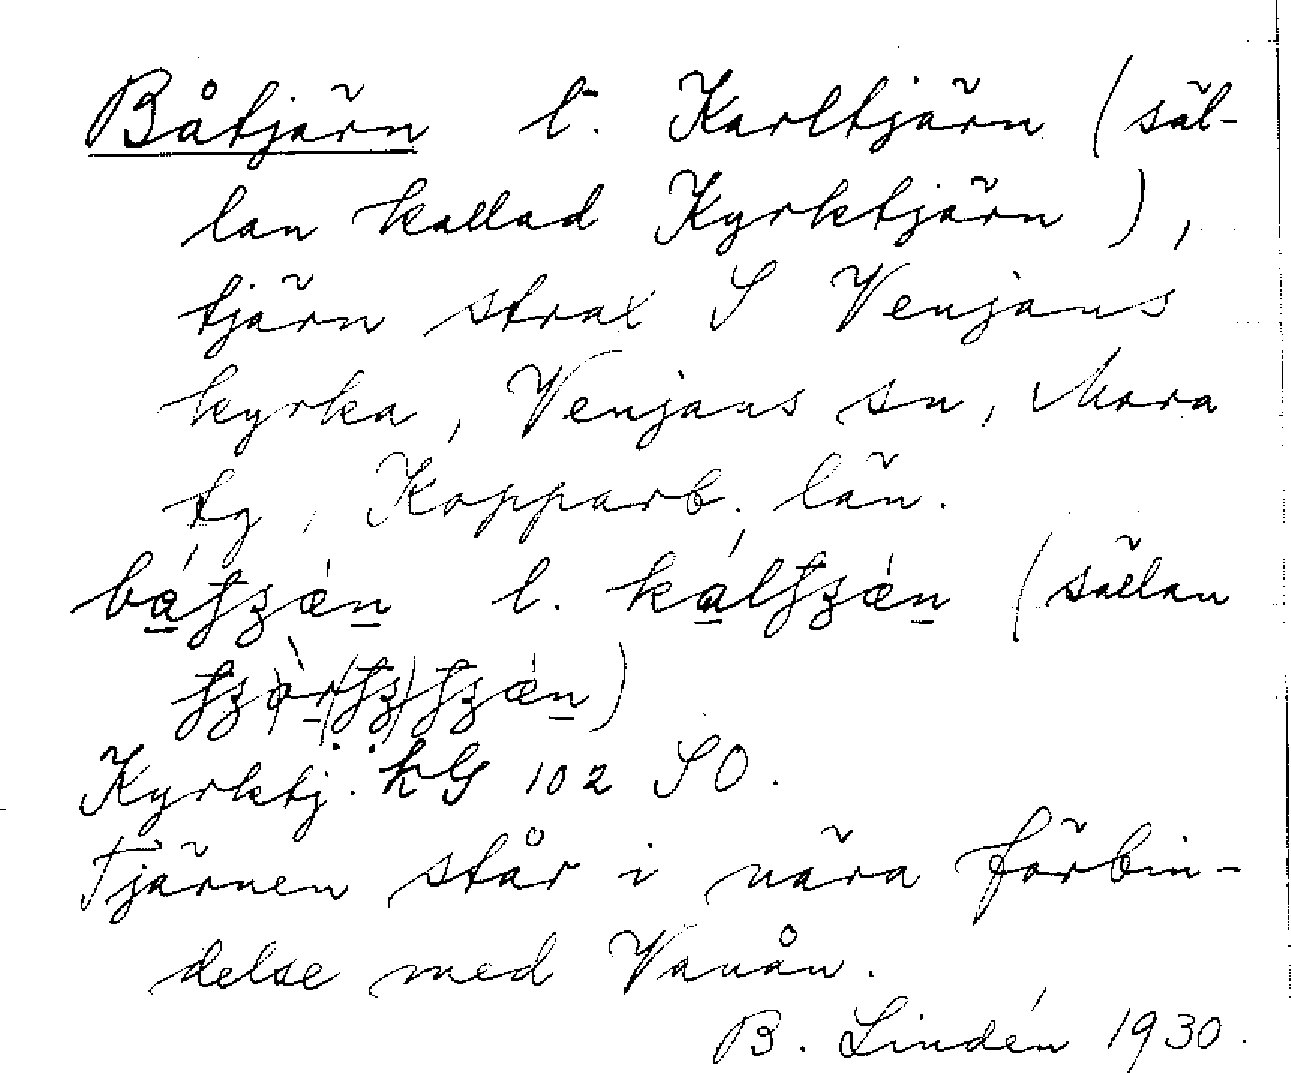 Båtjärn l. Karltjärn (säl-
lan kallad Kyrktjärn),
tjärn strax S Venjans
kyrka, Venjans sn, Mora
tg, Kopparb. län.
l. (sällan
Kyrktj. hG 102 SO.
Tjärnen står i nära förbin-
delse med Vanån.
B. Lindén 1930.